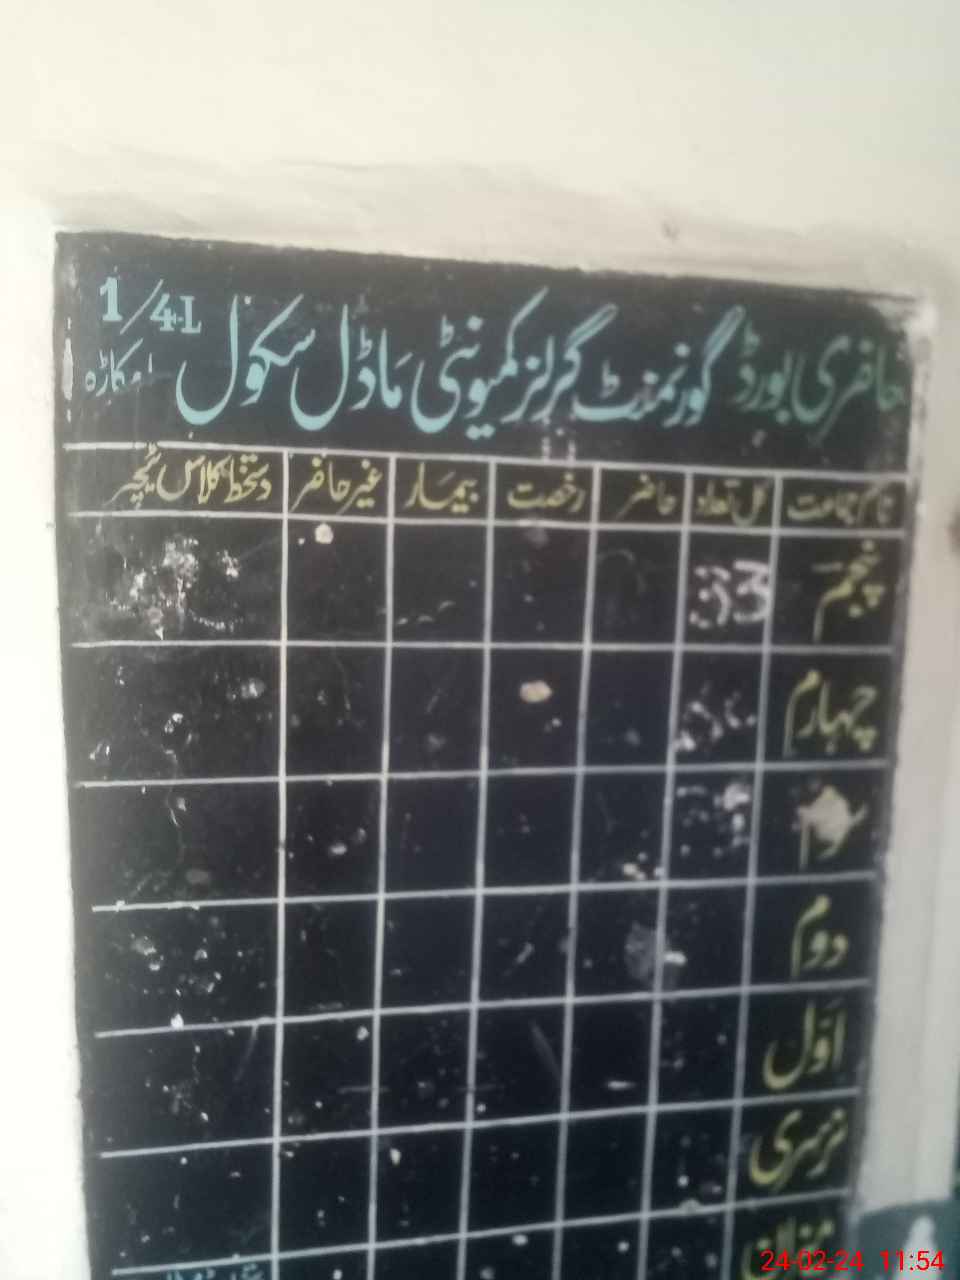 حاضری بورڈ گورنمنٹ گرلز کمیونٹی ماڈل سکول 1/4-L
اوکاڑہ
نام جماعت کل تعداد حاضر رخصت بیمار غیر حاضر دستخط کلاس ٹیچر
پنجم 33
چہارم
سوم
دوم
اوّل
نرسری
میزان
24-02-24 11:54